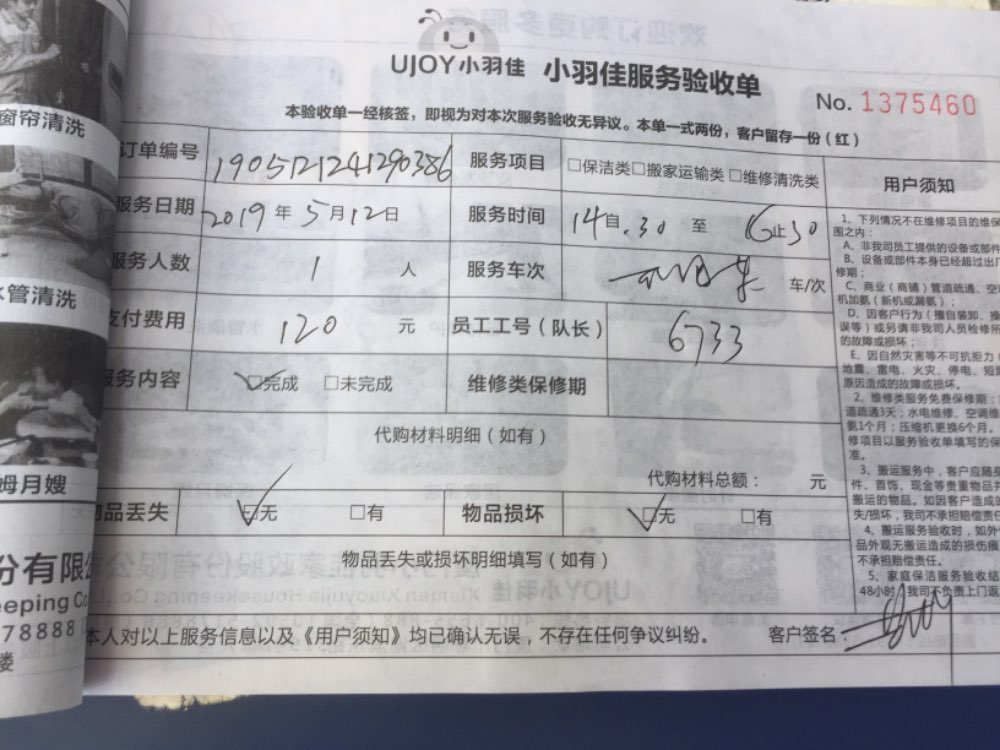 UJOY小羽佳 小羽佳服务验收单
No. 1375460
本验收单一经核签，即视为对本次服务验收无异议。本单一式两份，客户留存一份（红）
订单编号 1905121241290386 服务项目 □保洁类□搬家运输类 □维修清洗类
服务日期 2019年5月12日 服务时间 14自.30 至 16止30
服务人数 1 人 服务车次 车/次
支付费用 120 元 员工工号（队长） 6733
服务内容 ☑完成 □未完成 维修类保修期
代购材料明细（如有）
代购材料总额： 元
物品丢失 ☑无 □有 物品损坏 ☑无 □有
物品丢失或损坏明细填写（如有）
本人对以上服务信息以及《用户须知》均已确认无误，不存在任何争议纠纷。 客户签名：
用户须知
1、下列情况不在维修项目的维保
围之内：
A、非我司员工提供的设备或部件
B、设备或部件本身已经超过出厂
修期；
C、商业（商铺）管道疏通、空
机加氨（新机或漏氨）；
D、因客户行为（擅自装卸、操
误等）或另请非我司人员检修
的故障或损坏；
E、因自然灾害等不可抗拒力（
地震、雷电、火灾、停电、短
原因造成的故障或损坏。
2、维修类服务免费保修期：
道疏通3天；水电维修、空调维
氨1个月；压缩机更换6个月。
修项目以服务验收单填写的保
准。
3、搬运服务中，客户应随身
件、首饰、现金等贵重物品
搬运的物品。如因客户造成的
失/损坏，我司不承担赔偿责任
4、搬运服务验收时，如外
品外观无搬运造成的损伤痕
不承担赔偿责任。
5、家庭保洁服务验收结
48小时，我司不负责上门返
窗帘清洗
水管清洗
姆月嫂
份有限公
eeping Co
78888
楼